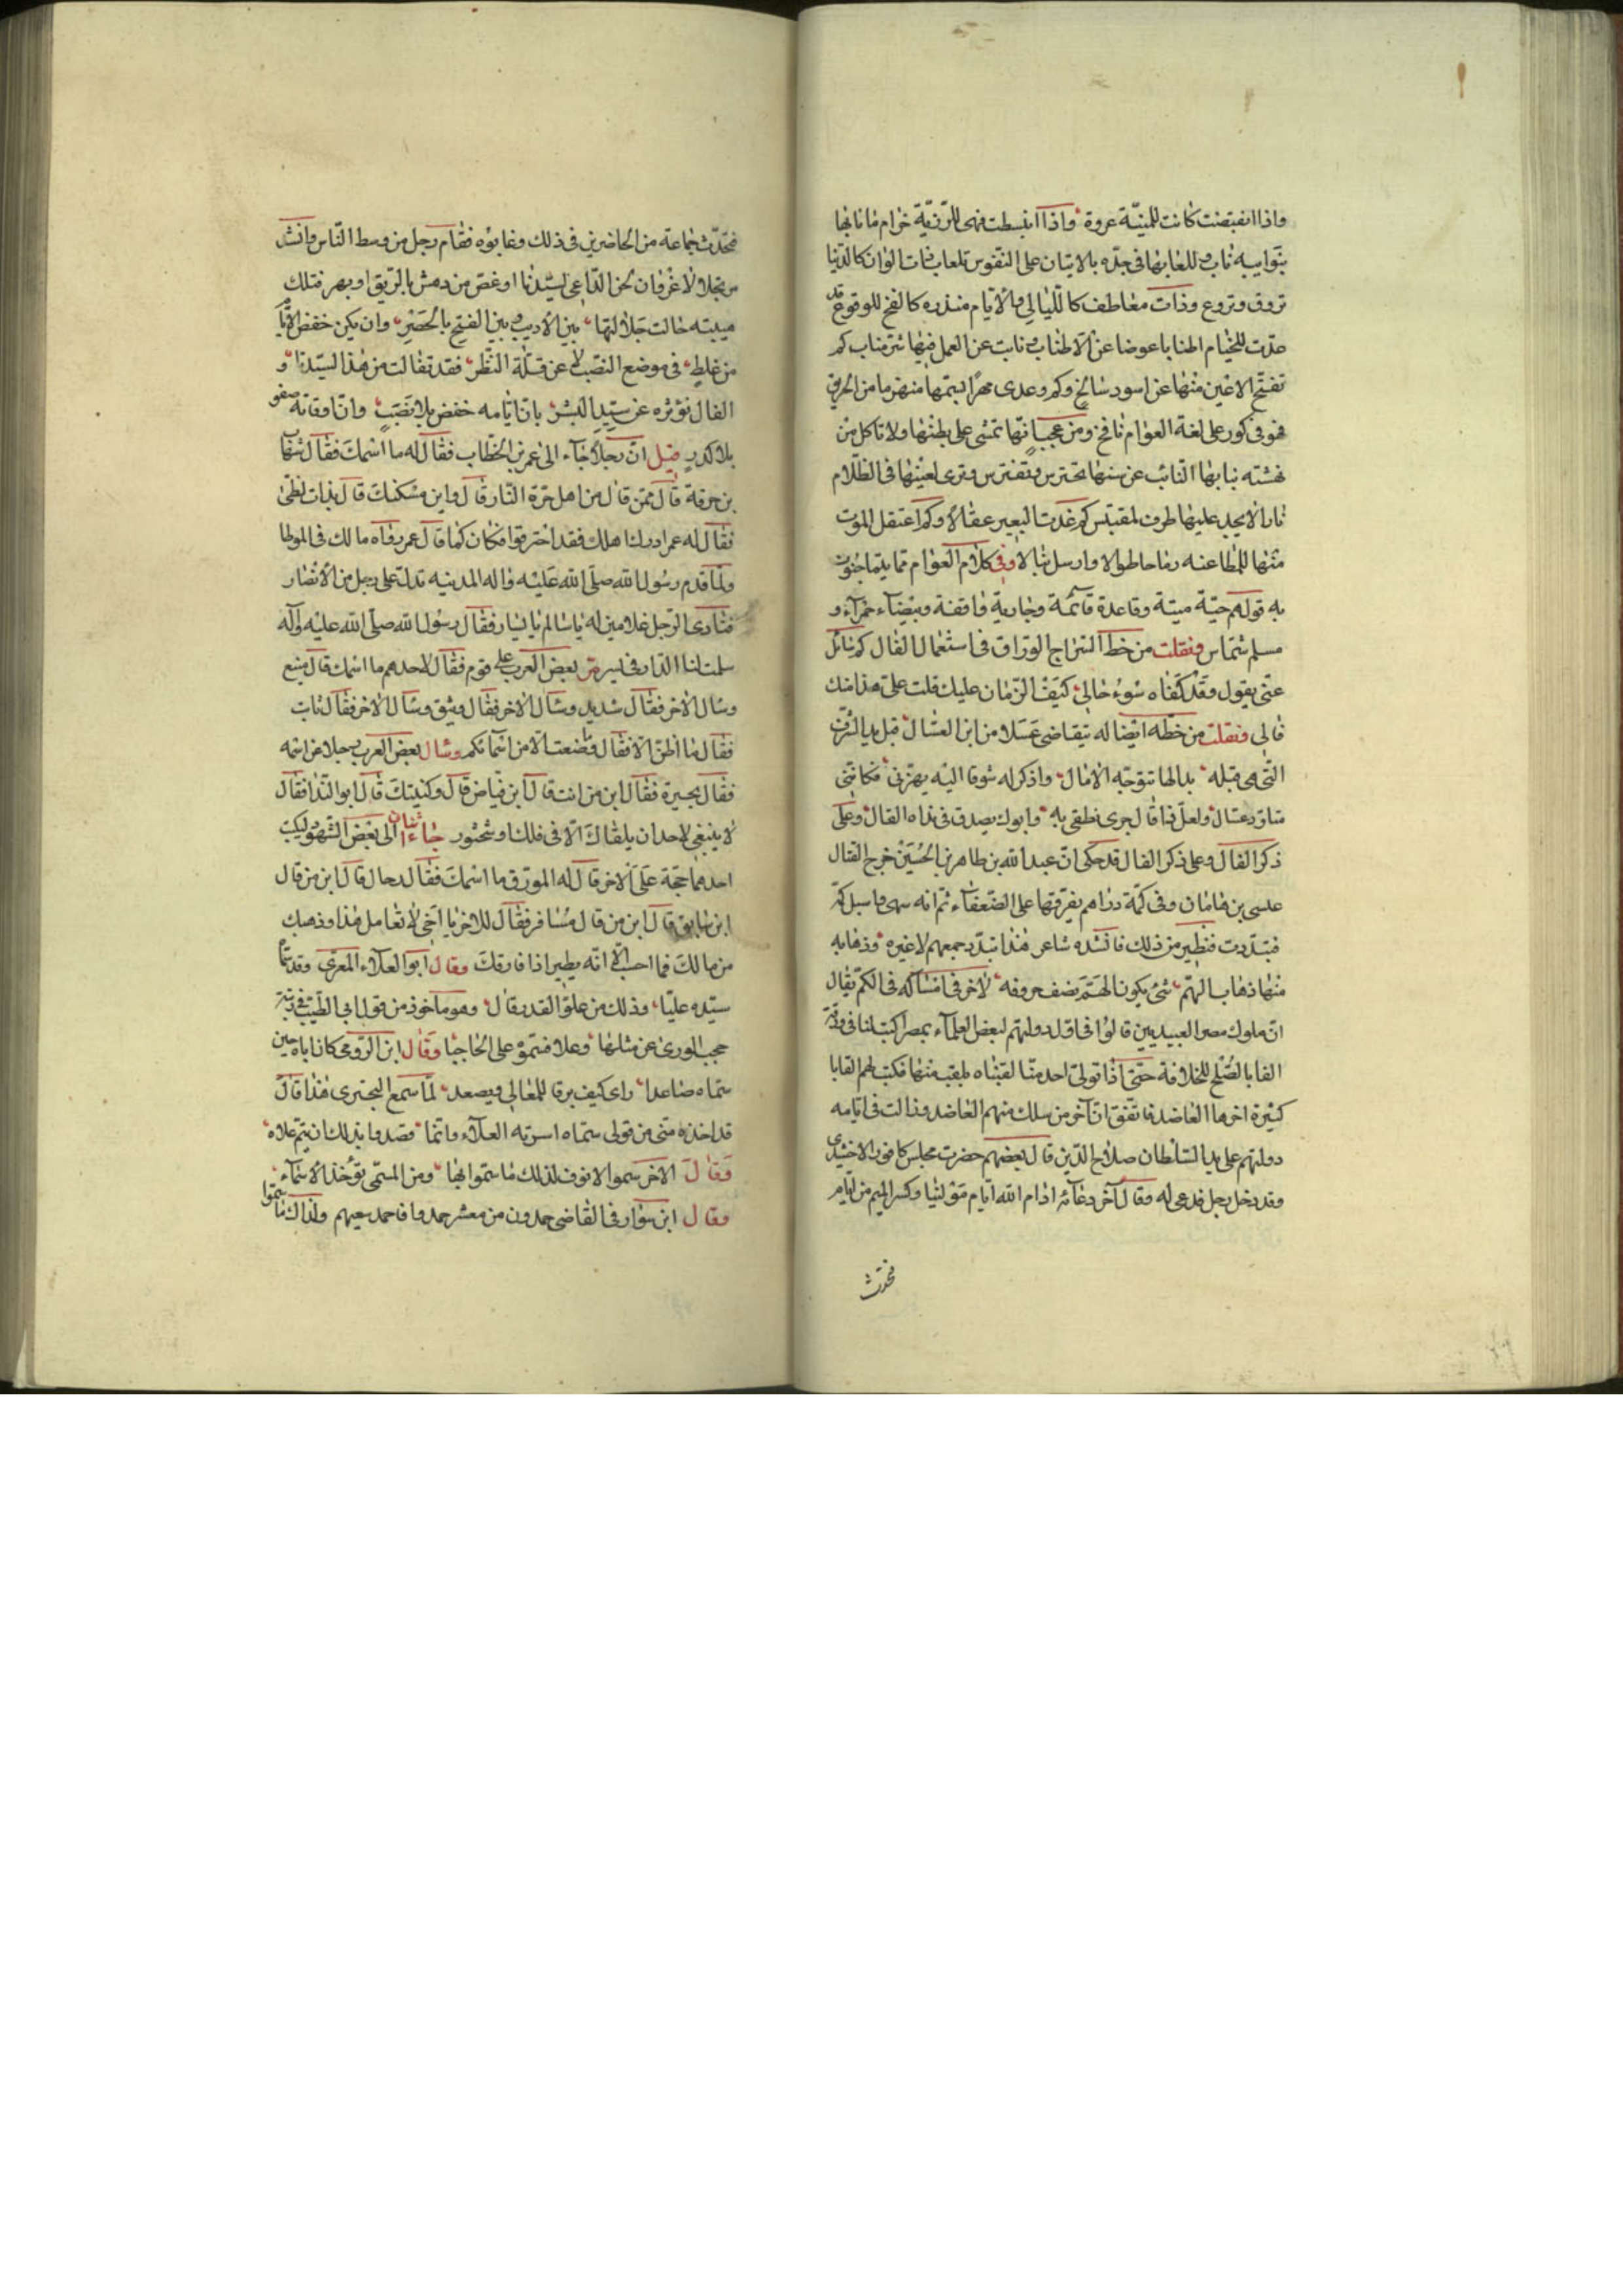 واذا انقبضت كانت للمنيّة عروة واذا انبسطت فهى للرّزيّة خزام ما نابها
بنوايبه ناب وللعابها فى جدّه بالاتيان على النفوس تلعاب ذات الوان كالدّنيا
تروق وتروع وذات معاطف كالليالى والأيّام منذره كالفخ للوقوع قد
عدّت للخيام اطنابا عوضا عن الاطناب ونابت عن العمل فيها شرّ مناب كم
تفتح الاعين منها عن اسود سالخ وكم وعدى من الحريق
فهو فى كور على لغة العوام نافخ ومن عجب انّها تمشى على بطنها ولا تاكل من
نهشته بنابها النّائب عن سنها تحترس وتفترس وترى لعينها فى الظّلام
نارا لا يجد عليها طرف لمقتبس كم غدت للبعير عقالا وكم اعتقل الموت
منها للمطاعنه رماحا طوالا وارسل نبالا وفى كلام العوام ممّا
به قولهم حيّة ميتة وقاعدة قائمة وجارية واقفة وبيضاء حمراء و
مسلم شمّاس ونقلت من خط السّراج الورّاق فى استعمال الفال كم سائل
عنّى يقول وقد كفاه سوء حالى كيف الزّمان عليك قلت على هذا منك
فالى ونقلت من خطّه ايضا له يتقاضى عسلا من ابن العسّال قبل يد الشّرف
الّتى هى قبله بدا لها تتوجّه الامال واذكر له شوقا اليه يهزّنى فكانّنى
متاوّد عسّال ولعلّ فالا قال جرى نطقى به وابوك يصدق فى نداه الفال وعلى
ذكر الفال وعلى ذكر الفال قد حكى انّ عبد الله بن طاهر بن الحسين خرج لقتال
عيسى بن هامان وفى كمّه دراهم يفرّقها على الضّعفاء ثم انه سهى واسبل كمّه
فتبدّدت فتطيّر من ذلك فانشده شاعر هذا تبدّد جمعهم لا غيره وذهابه
منها ذهاب الهمّ شئ يكون الهمّ نصف حروفه لا خير فى امساكه فى الكمّ يقال
انّ ملوك مصر العبيديين قالوا فى اوّل دولتهم لبعض العلماء بمصر اكتب لنا فى ورقة
القابا تصلح للخلافة حتّى اذا تولّى احد منّا لقبناه بلقب منها فكتب لهم القابا
كثيرة اخرها العاضد فاتّفق انّ آخر من ملك منهم العاضد وزالت فى ايّامه
دولتهم على يد السّلطان صلاح الدّين قال بعضهم حضرت مجلس كافور الاخشيدى
وقد دخل رجل فدعى له وقال آخر دعائه ادام الله ايّام مولينا وكسر الميم من ايّام
فتحدّث
فتحدّث جماعة من الحاضرين فى ذلك وعابوه فقام رجل من وسط النّاس وانشد
مرتجلا لا غرو ان لحن الدّاعى لسيّدنا او غصّ من دهش بالرّيق او بهر فتلك
هيبته حالت جلالتها بين الاديب وبين الفتح بالحصر وان يكن خفض الايّام
من غلط فى موضع النصب لا عن قلّة النّظر فقد تفالت من هذا لسيّدنا و
الفال نؤثره عن سيّد البشر بانّ ايّامه خفض بلا نصب وانّ اوقاته صفو
بلا كدر قيل انّ رجلا جاء الى عمر بن الخطّاب فقال له ما اسمك فقال شهاب
بن حرقة قال ممّن قال من اهل حرّة النّار قال واين مسكنك قال بذات لظى
فقال له عمر ادرك اهلك فقد احترقوا فكان كما قال عمر رواه مالك فى الموطا
ولمّا قدم رسول الله صلّى الله عليه واله المدينه نزل على رجل من الأنصار
فنادى الرّجل غلامين له يا سالم يا يسار فقال رسول الله صلّى الله عليه وآله
سلمت لنا الدّار فى يسر مرّ بعض العرب على قوم فقال لاحدهم ما اسمك قال منيع
وسال الاخر فقال شديد وسال الاخر فقال وثيق وسال الاخر فقال ثابت
فقال ما اظنّ الاقفال وضعت الّا من اسمائكم وسال بعض العرب رجلا عن اسمه
فقال بحيرة فقال ابن من انت قال ابن فيّاض قال وكنيتك قال ابو النّدا فقال
لا ينبغى لاحد ان يلقاك الّا فى فلك وشختور جاء اثنان الى بعض الشّهود ليكتب
احدهما حجّة على الاخر قال له المورّق ما اسمك فقال رحال قال ابن من قال
ابن سابق قال ابن من قال مسافر فقال للاخر يا اخى لا تعامل هذا وذهبك
من مالك فما احسب الّا انّه يطير اذا فارقك وقال ابو العلاء المعرّى وقد سمّاه
سيّده عليّا وذلك من علوّ القدر فال وهو ماخوذ من قول ابى الطّيّب فى رتبة
حجب الورى عن مثلها وعلا فسمّوه على الحاجبا وقال ابن الرّومى كانّ اباه حين
سمّاه صاعدا راى كيف يرقا للمعالى ويصعد لمّا سمع البحترى هذا قال
قد اخذه منّى من قولى سمّاه اسرته العلاء وانّما قصدوا بذلك ان يتم علاه
وقال الاخر سموا الانوف لذلك ما سموا ابها ومن المسمّى تؤخذ الاسماء
وقال ابن سوار فى القاضى حمدون من معشر حمدوا فاحمد سعيهم ولذاك ما سمّوا